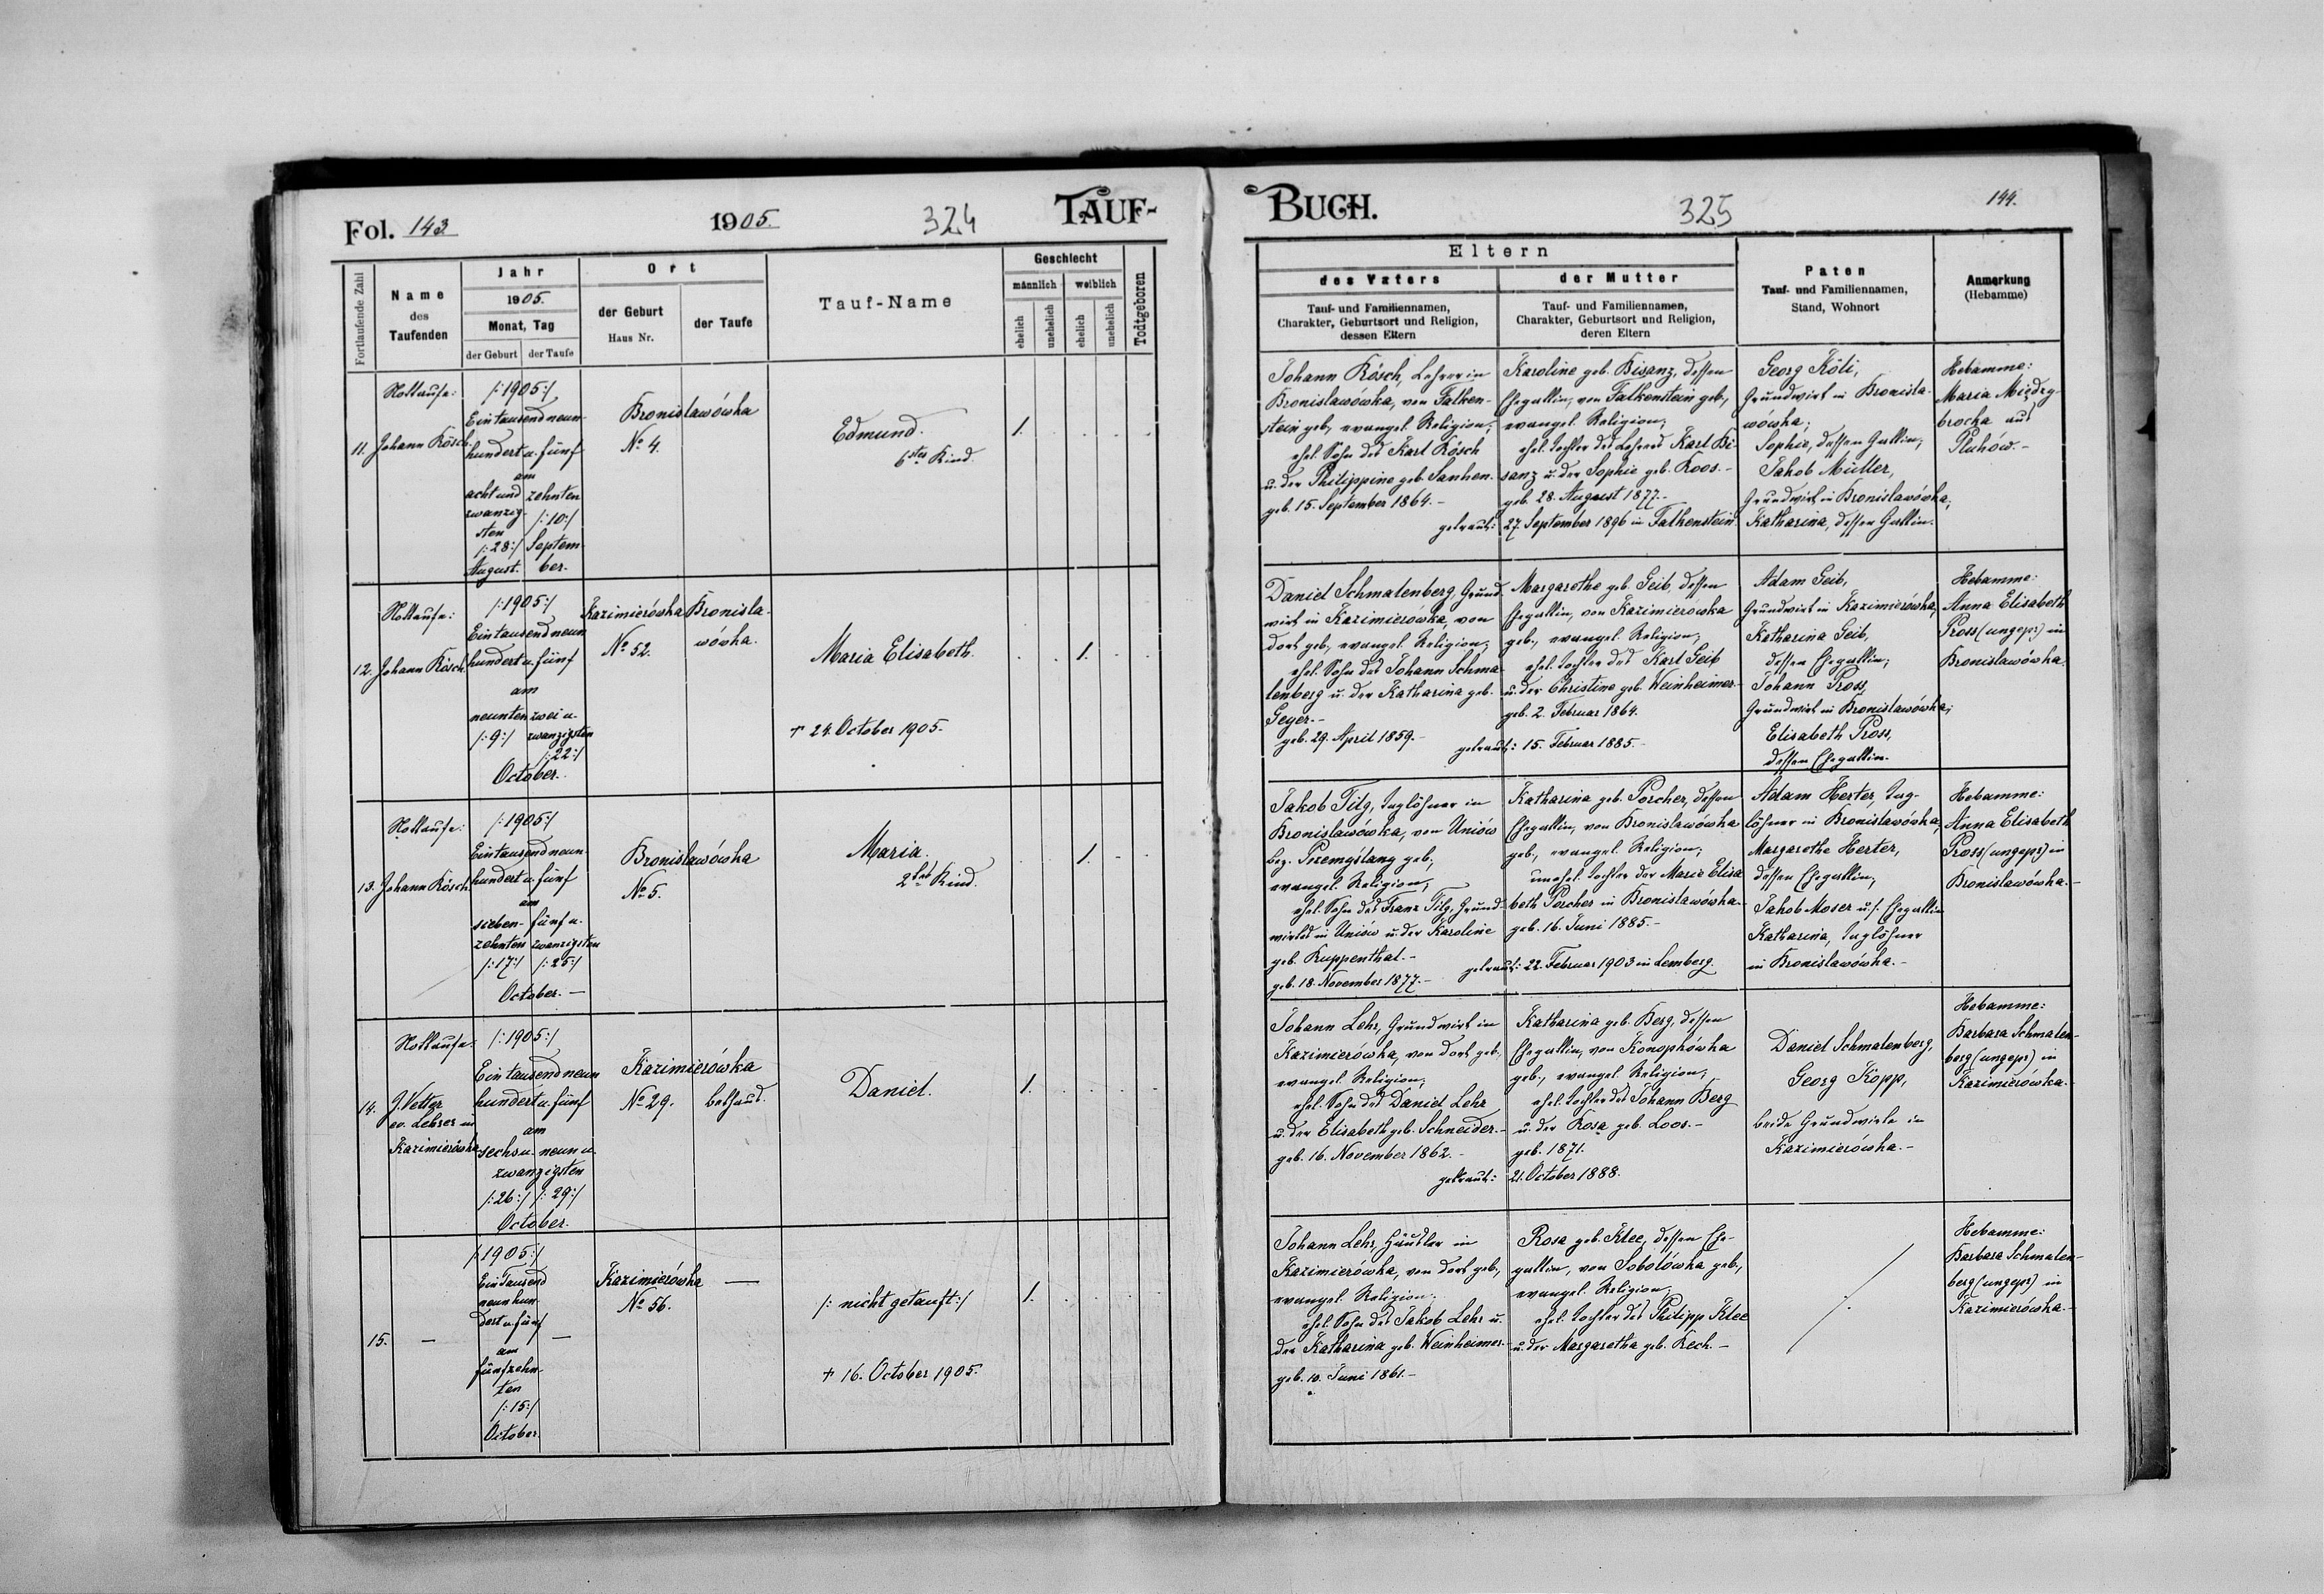 Fol. 143
1905.
324
TAUF-
Fortlaufende Zahl
Name
des
Taufenden
Jahr
1905.
Monat, Tag
der Geburt
der Taufe
Ort
der Geburt
Haus Nr.
der Taufe
Tauf-Name
Geschlecht
männlich
weiblich
ehelich
unehelich
ehelich
unehelich
Todtgeboren
11.
Nottaufe:
Johann Kösch.
/:1905:/
Eintausendneun-
hundert u. fünf
am
acht und
zwanzig-
sten
/:28:/
August.
zehnten
/:10:/
Septem-
ber.
Bronislawówka
No 4.
Edmund.
6tes Kind.
1.
12.
Nottaufe:
Johann Kösch.
/:1905:/
Eintausendneun
hundert u. fünf
am
neunten
/:9:/
zwei u.
zwanzigsten
/:22:/
October.
Kazimierówka
No 52.
Bronisla-
wówka.
Maria Elisabeth.
† 24. October 1905.
1.
13.
Nottaufe:
Johann Kösch.
/:1905:/
Eintausendneun-
hundert u. fünf
am
sieben-
zehnten
/:17:/
fünf u.
zwanzigsten
/:25:/
October. —
Bronislawówka
No 5.
Maria.
2tes Kind.
1.
14.
Nottaufe:
J. Vetter
ev. Lehrer in
Kazimierówka
/:1905:/
Eintausendneun
hundert u. fünf
am
sechs u. neun u.
zwanzigsten
/:26:/ /:29:/
October.
Kazimierówka
No 29. bethaus.
Daniel.
1.
15.
—
/:1905:/
EinTausend
neunhun-
dert u. fünf
am
fünfzehn-
ten
/:15:/
October.
—
Kazimierówka
No 56.
—
/: nicht getauft:/
† 16. October 1905.
1.
BUCH.
325
144.
Eltern
des Vaters
Tauf- und Familiennamen,
Charakter, Geburtsort und Religion,
dessen Eltern
der Mutter
Tauf- und Familiennamen,
Charakter, Geburtsort und Religion,
deren Eltern
Paten
Tauf- und Familiennamen,
Stand, Wohnort
Anmerkung
(Hebamme)
Johann Kösch, Lehrer in
Bronislawowka, von Falken-
stein geb., evangel. Religion;
ehel. Sohn des Karl Kösch
u. der Philippine geb. Sanhen.
geb. 15. September 1864. -
Karoline geb. Bisanz, dessen
Ehegattin, von Falkenstein geb.,
evangel. Religion;
ehel. Tochter des Lehrers Karl Bi-
sanz u. der Sophie geb. Koos. -
geb. 28. August 1877. -
getraut: 27. September 1896 in Falkenstein.
Georg Köli,
Grundwirt in Bronisla-
wówka;
Sophie, dessen Gattin;
Jakob Müller,
Grundwirt in Bronislawówka;
Katharina, dessen Gattin.
Hebamme:
Maria Miedzy-
brocka aus
Pluhów. -
Daniel Schmalenberg, Grund-
wirt in Kazimierówka, von
dort geb., evangel. Religion;
ehel. Sohn des Johann Schma-
lenberg u. der Katharina geb.
Geyer. -
geb. 29. April 1859. -
Margarethe geb. Geib, dessen
Ehegattin, von Kazimierowka
geb., evangel. Religion;
ehel. Tochter des Karl Geib
u. der Christine geb. Weinheimer. -
geb. 2. Februar 1864.
getraut: 15. Februar 1885. -
Adam Geib,
Grundwirt in Kazimierówka,
Katharina Geib,
dessen Ehegattin;
Johann Pross,
Grundwirt in Bronislawówka;
Elisabeth Pross,
dessen Ehegattin.
Hebamme:
Anna Elisabeth
Pross (ungepr.) in
Bronislawówka.
Jakob Tilg, Taglöhner in
Bronislawówka, von Uniów
bez. Przemyślany geb.,
evangel. Religion;
ehel. Sohn des Franz Tilg, Grund-
wirtes in Uniów u. der Karoline
geb. Kuppenthal. -
geb. 18. November 1877. -
Katharina geb. Porcher, dessen
Ehegattin, von Bronislawówka
geb., evangel. Religion;
unehel. Tochter der Maria Elisa-
beth Porcher in Bronislawówka. -
geb. 16. Juni 1885. -
getraut: 22. Februar 1903 in Lemberg.
Adam Herter, Tag-
löhner in Bronislawówka,
Margarethe Herter,
dessen Ehegattin;
Jakob Moser u. s. Ehegattin
Katharina, Taglöhner
in Bronislawówka. -
Hebamme:
Anna Elisabeth
Pross (ungepr.) in
Bronislawówka. -
Johann Lehr, Grundwirt in
Kazimierówka, von dort geb.,
evangel. Religion;
ehel. Sohn des Daniel Lehr
u. der Elisabeth geb. Schneider. -
geb. 16. November 1862. -
Katharina geb. Berg, dessen
Ehegattin, von Konopkówka
geb., evangel. Religion;
ehel. Tochter des Johann Berg
u. der Rosa geb. Loos. -
geb. 1871.
getraut: 21. October 1888.
Daniel Schmalenberg,
Georg Kopp,
beide Grundwirte in
Kazimierówka. -
Hebamme:
Barbara Schmalen-
berg (ungepr.) in
Kazimierówka. -
Johann Lehr, Häusler in
Kazimierówka, von dort geb.,
evangel. Religion;
ehel. Sohn des Jakob Lehr u.
der Katharina geb. Weinheimer. -
geb. 10. Juni 1861. -
Rosa geb. Klee, dessen Ehe-
gattin, von Sobolówka geb.,
evangel. Religion;
ehel. Tochter des Philipp Klee
u. der Margaretha geb. Rech. -
Hebamme:
Barbara Schmalen-
berg (ungepr.) in
Kazimierówka. -